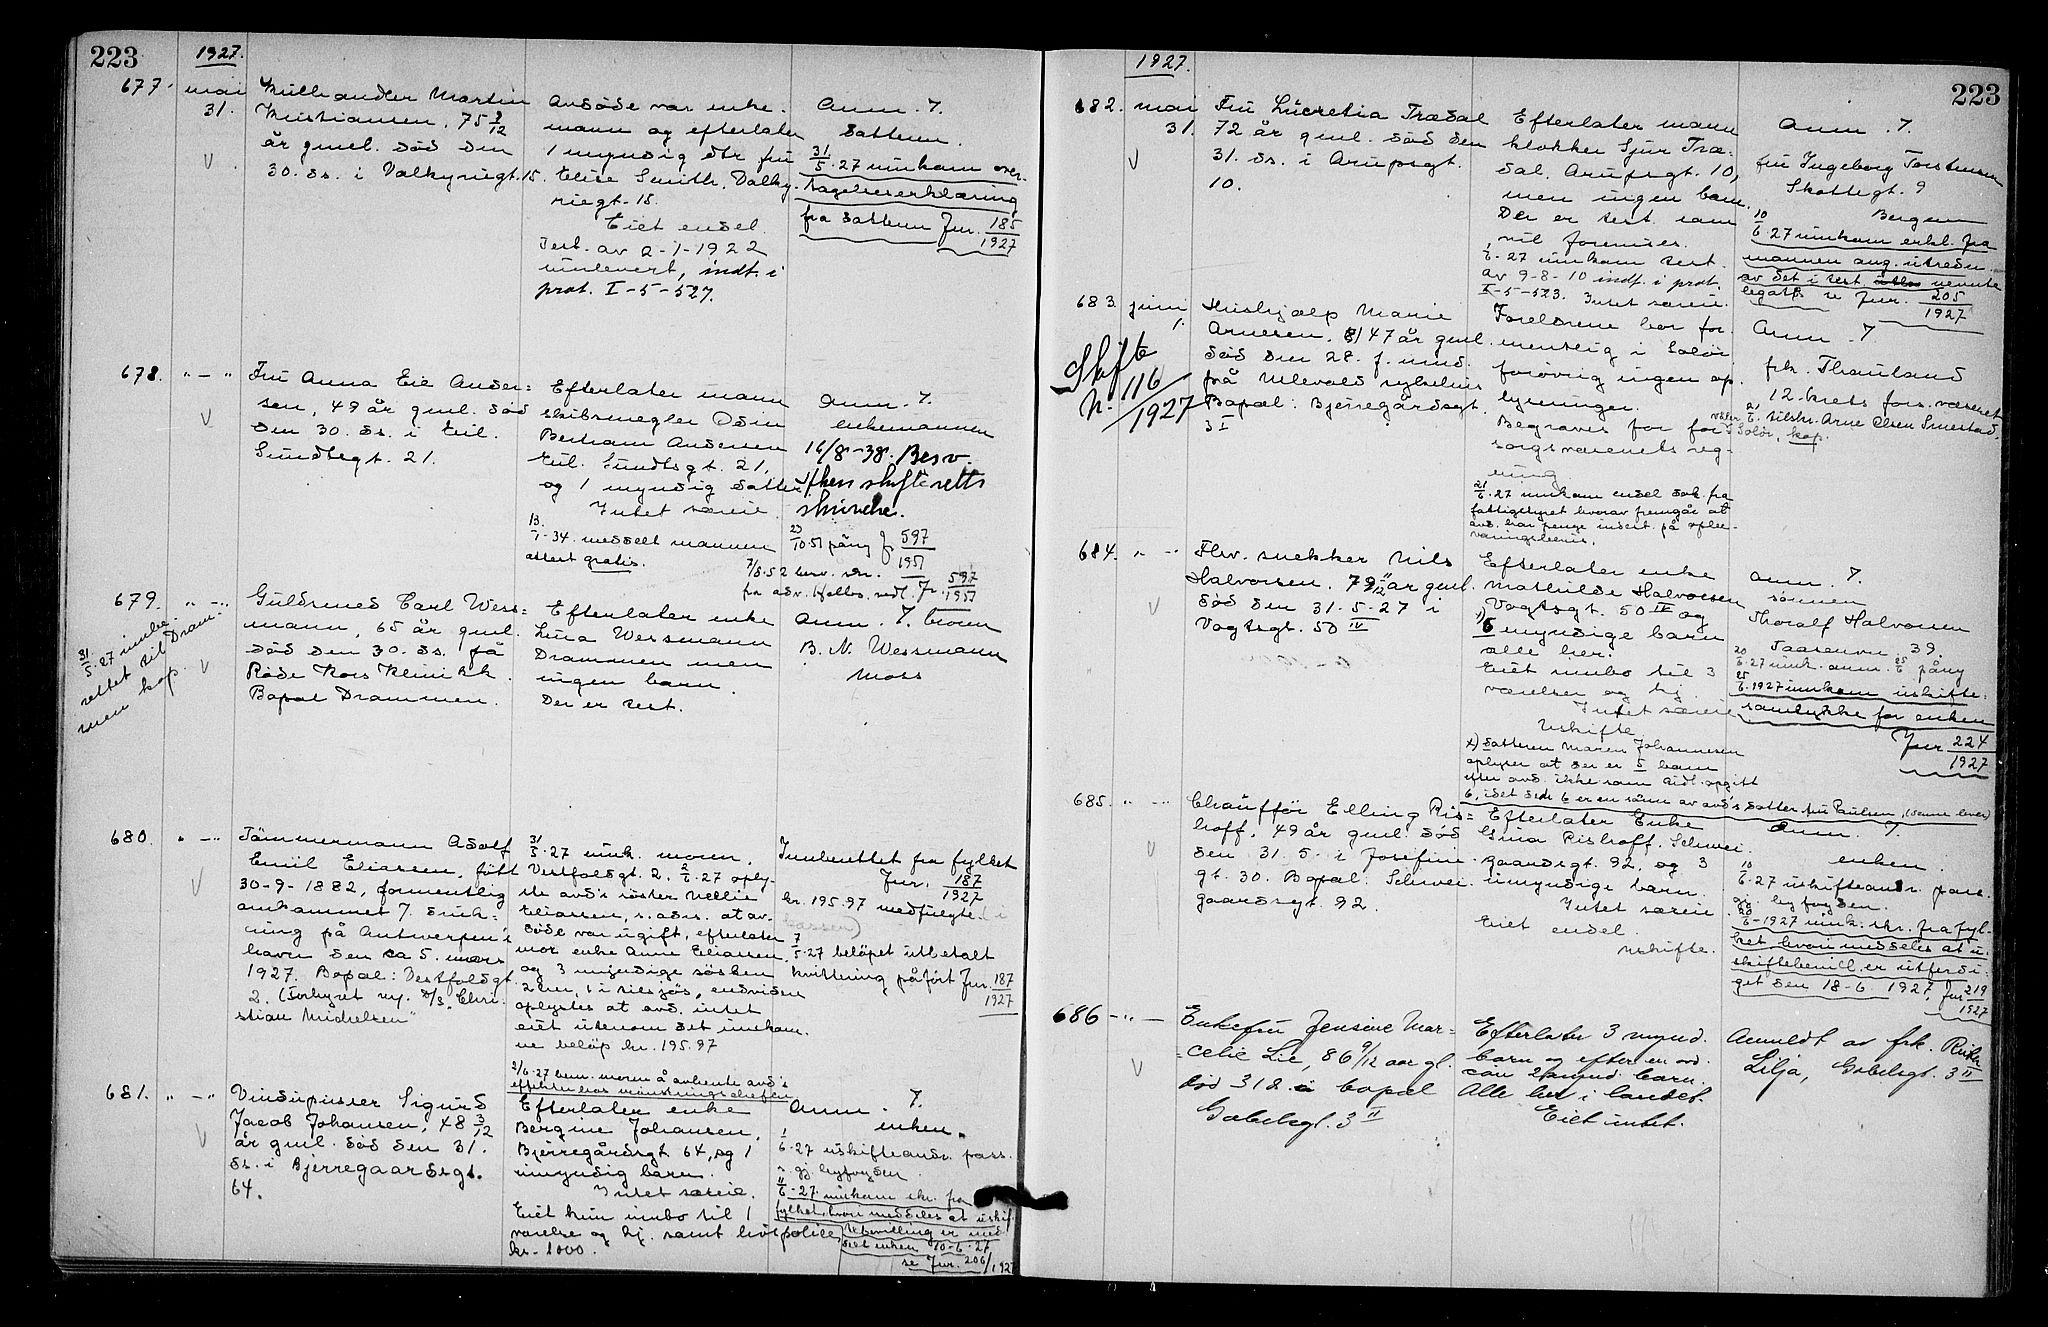 223
1927.
677. mai
31.
Melkhandler Martin
Kristiansen, 75 9/12
år gmel. död den
30. ds. i Valkyriegt. 15.
Avdöde var enke-
mann og efterlater
1 myndig dtr. fru
Elise Smith, Valky-
riegt. 15.
Eiet endel.
Test. av 2-1-1922
innlevert, indf. i
prot. I-5-527.
Anm. 7.
datteren.
31/5-27 innkom over-
tagelseserklæring
fra datteren Jnr. 185/1927
678. "-"
Fru Anna Eie Ander-
sen, 49 år gmel. död
den 30. ds. i Eil.
Sundtsgt. 21.
Efterlater mann
skibsmegler Odin
Bertram Andersen
Eil. Sundtsgt. 21,
og 1 myndig datter.
Intet særeie.
13/1-34. meddelt mannen
attest gratis.
Anm. 7.
enkemannen
16/8-38. Besv.
Aker skifteretts
skrivelse.
23/10.51 påny J. 597/1951
7/8.52 besv. skr.
fra adv. vedl. Jr. 597/1951
679. "-"
31/5-27 innbe-
rettet til Dram-
men kap.
Guldsmed Carl Wess-
mann, 65 år gmel.
död den 30. ds. på
Röde Kors Klinikk.
Bopæl Drammen.
Efterlater enke
Lina Wessmann
Drammen men
ingen barn.
Der er test.
Anm. 7. broren
B. N. Wessmann
Moss
680. "-"
Tömmermann Adolf
Emil Eliassen, födt
30-9-1882, formentlig
omkommet 7. druk-
ning på Antwerpen's
havn den ca 5. mars
1927. Bopæl: Vestfoldgt.
2. (Forhyret m/ D/S "Chri-
stian Michelsen"
31/5-27 innk. moren,
Vestfoldgt. 2. 2/6-27 oply-
ste avd's söster Nellie
Eliassen, s. adr. at av-
döde var ugift, efterlater
mor enke Anne Eliassen
og 3 myndige sösken
2 her, 1 i tilsjös, endvidere
oplystes at avd. intet
eiet utenom det innkom-
ne belöp kr. 195.97
2/6-27 bem. moren å avhente avd's
effekter hos mönstringschefen
Innberettet fra fylket
Jnr. 187/1927
kr. 195.97 medfulgte. (i
kassen)
7/5-27 belöpet utbetalt
kvittering påfört Jnr. 187/1927
681. "-"
Vinduspusser Sigurd
Jacob Johansen, 48 3/12
år gmel. död den 31.
ds. i Bjerregaardsgt.
64.
Efterlater enke
Bergine Johansen,
Bjerregårdsgt 64, og 1
umyndig barn.
Intet særeie.
Eiet kun innbo til 1
værelse og kj. samt livspolice
kr. 1000.
Anm. 7.
enken.
1/6-27 uskifteandr. pass.
s. gj. byfogden
11/6-27 innkom skr. fra
fylket, hvori meddeles at uskif-
tebevilling er med-
delt enken 10-6-27
se Jnr. 206/1927
223
1927.
682. mai
31.
Fru Lucretia Trædal
72 år gmel. död den
31. ds. i Arupsgt.
10.
Efterlater mann
klokker Sjur Træ-
dal, Arupsgt. 10,
men ingen barn.
Der er test. som
vil forevises.
1/6-27 innkom test.
av 9-8-10 indf. i prot.
I-5-523. Intet særeie.
Anm. 7.
fru Ingeborg Torstensen
Skottegt. 9
Bergen
10/6-27 innkom erkl. fra
mannen ang. utreden
av det i test. nevnte
legat se Jnr. 205/1927
683. juni
1.
Skifte
N. 116/1927
Hushjælp Marie
Arnesen, 47 år gmel.
död den 28. f. mnd.
på Ulevold sykehus
Bopæl: Bjerregårdsgt.
3 I
Foreldrene bor for-
mentlig i Solör
forövrig ingen op-
lysninger.
Begraves for for-
sorgsvæsenets reg-
ning
21/6-27 innkom endel dok. fra
fattigstyret hvorav fremgår at
avd. har penge innest. på opbe-
varingsbevis.
Anm. 7
frk. Thauland
12. krets fors. væsenet
2/6. tilskr. Arne Olsen Smestad.
i Solör, kap.
684. "-"
Fhv. snekker Nils
Halvorsen. 79 11/12 år gmel.
död den 31-5-27 i
Vogtsgt. 50 IV
Efterlater enke
Mathilde Halvorsen
Vogtsgt. 50 IV og
x) 6 myndige barn
alle her.
Eiet innbo til 3
værelser og kj.
Intet særeie
Uskifte
x) Datteren Maren Johannesen
oplyser at der er 5 barn
efter avd. ikke som tidl. opgitt
6, idet den 6 er en sönn av avd's datter fru Paulsen, (denne lever)
anm. 7.
sönnen
Thoralf Halvorsen
Taasenvn. 39.
20/6-27 innk. anm. 25/6 påny
25/6-1927 innkom uskifte-
samtykke for enken
Jnr 224/1927
685. "-"
Chaufför Elling Ris-
hoff, 49 år gmel. död
den 31. 5. i Josefine-
gt. 30. Bopæl: Schwei-
gaardsgt. 92.
Efterlater Enke
Gina Rishoff, Schwei-
gaardsgt. 92, og 3
umyndige barn.
Intet særeie
Eiet endel.
Uskifte.
Anm. 7.
enken.
10/6-27 uskifteandr. pass.
gj. byfogden.
20/6-1927 innk. skr. fra fyl-
ket hvori meddeles at u-
skiftebevill. er utferdi-
get den 18-6 1927, Jnr 219/1927
686 -"-
Enkefru Jensine Mar-
celie Lie, 86 9/12 aar gl.
död 31 ds. i bopæl
Gabelsgt. 3 II
Efterlater 3 mynd.
barn og efter en avd.
sön 2 mynd. barn.
Alle her i landet.
Eiet intet.
Anmeldt av frk. Ruth
Lilja, Gabelsgt. 3 II